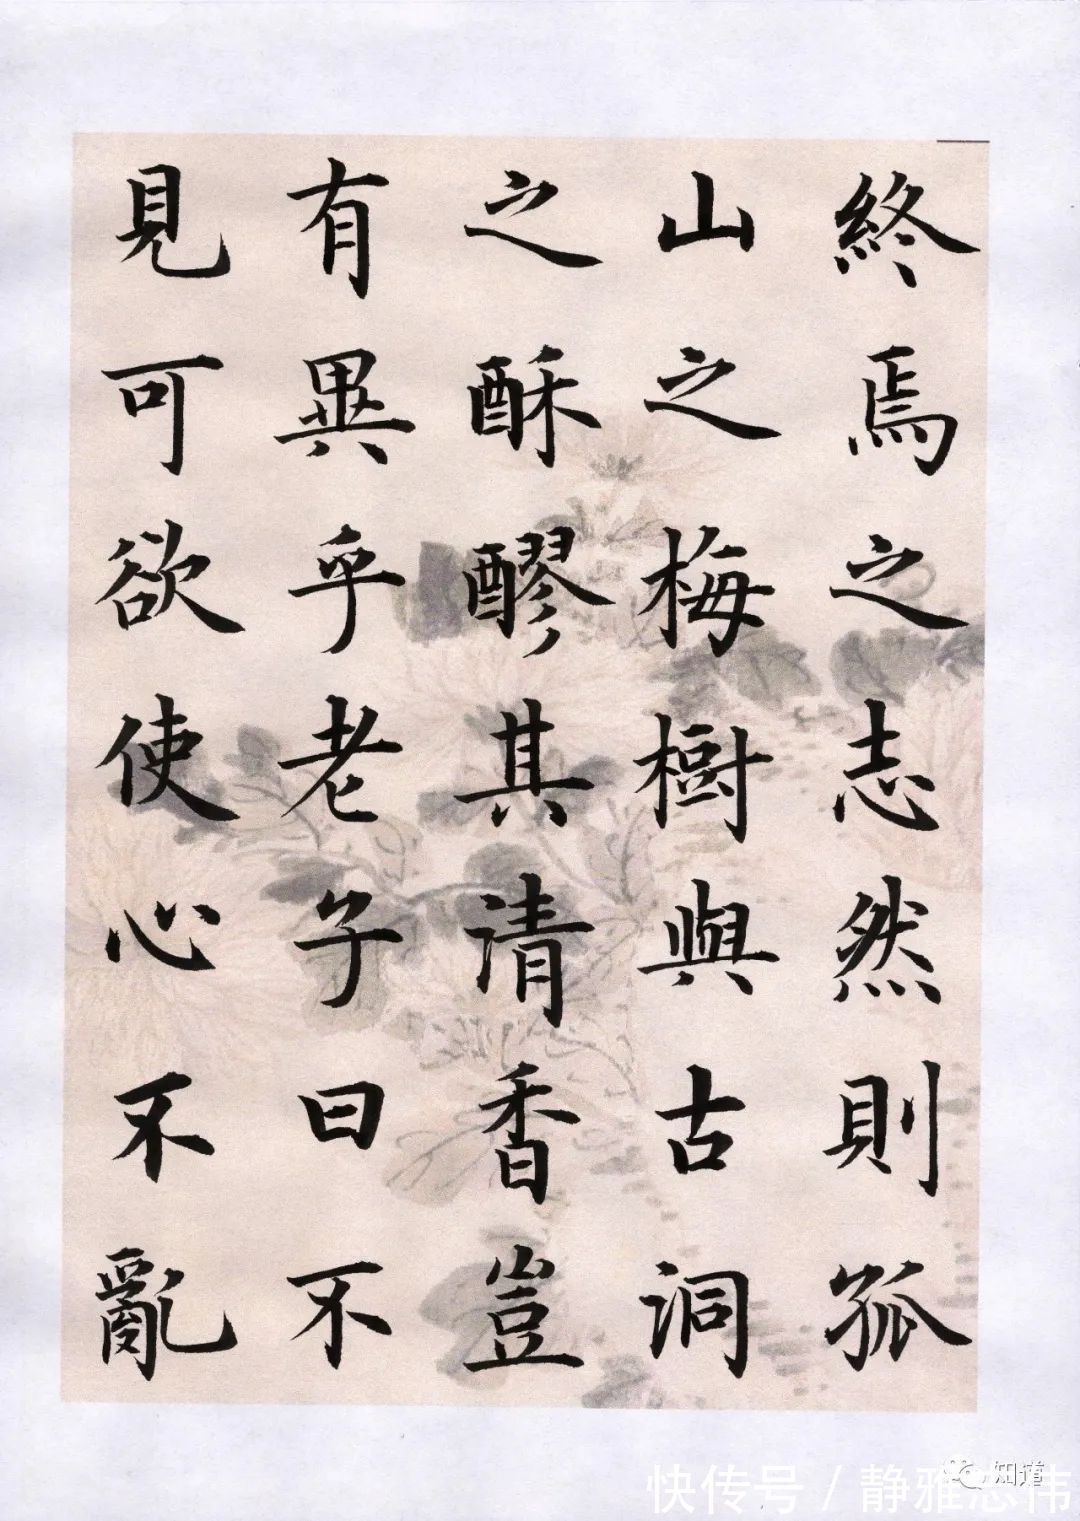 終焉之志然則孤
山之梅樹與古洞
之酥醪其清香豈
有異乎老子曰不
見可欲使心不亂
知道
快传号 / 静雅志伟